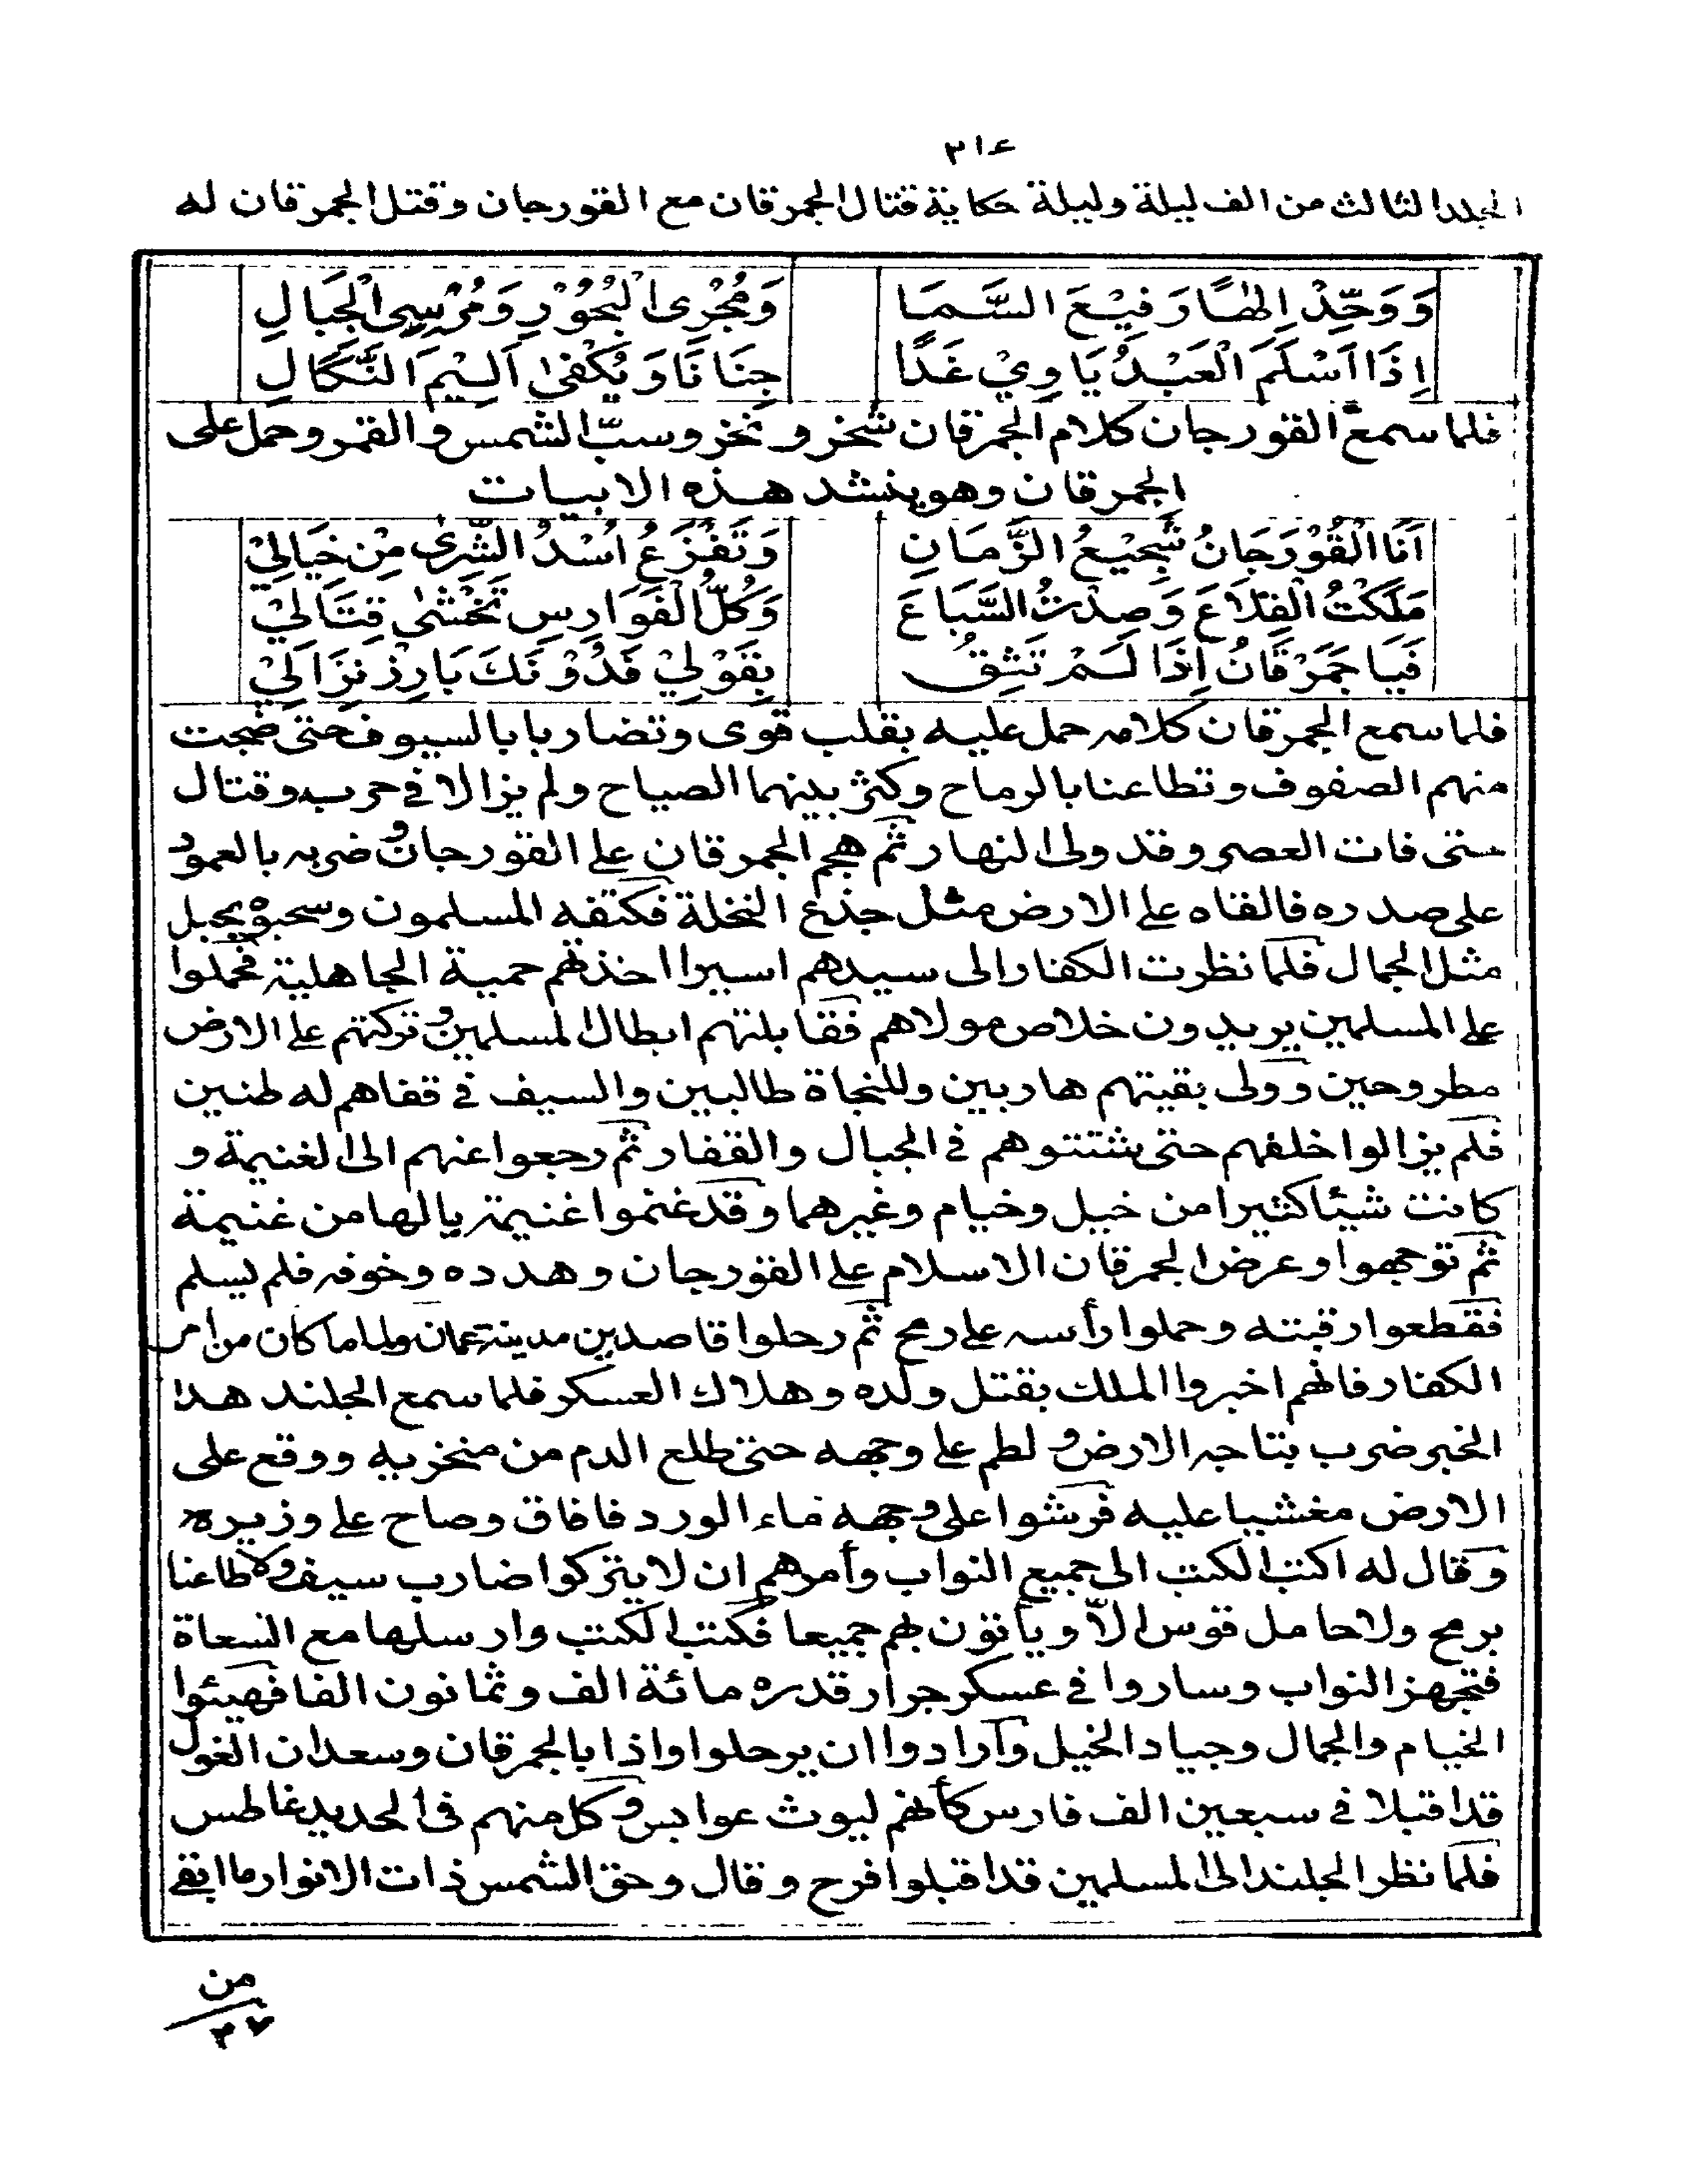 ٣١٤
المجلد الثالث من الف ليلة وليلة حكاية قتال الجمرقان مع القورجان وقتل الجمرقان له
وَوَحِّدْ اِلٰهًا رَفِيْعَ السَّمَا وَمُجْرِى الْبُحُوْرِ وَمُرْسِى الْجِبَالِ
اِذَا اَسْلَمَ الْعَبْدُ يَاوِيْ غَدًا جِنَانًا وَيُكْفىٰ اَلِيْمَ النَّكَالِ
فلما سمع القورجان كلام الجمرقان شخر ونخر وسبّ الشمس والقمر وحمل على
الجمرقان وهو ينشد هذه الابيات
اَنَا الْقُوْرَجَانُ شَجِيْعُ الزَّمَانِ وَتَفْزَعُ اُسْدُ الشَّرٰى مِنْ خَيَالِيْ
مَلَكْتُ الْقِلَاعَ وَصِدْتُ السَّبَاعَ وَكُلُّ الْفَوَارِسِ تَخْشىٰ قِتَالِيْ
فَيَا جَمَرْقَانُ اِذَا لَمْ تَثِقُ بِقَوْلِيْ فَدُوْنَكَ بَارِزْ نِزَالِيْ
فلما سمع الجمرقان كلامه حمل عليه بقلب قوى وتضاربا بالسيوف حتى ضجت
منهم الصفوف وتطاعنا بالرماح وكثر بينهما الصياح ولم يزالا في حرب وقتال
حتى فات العصر وقد ولى النهار ثم هجم الجمرقان على القورجان وضربه بالعمود
على صدره فالقاه على الارض مثل جذع النخلة فكتفه المسلمون وسحبوه بحبل
مثل الجمال فلما نظرت الكفار الى سيدهم اسيرا اخذتهم حمية الجاهلية فحملوا
على المسلمين يريدون خلاص مولاهم فقابلتهم ابطال المسلمين وتركتهم على الارض
مطروحين وولى بقيتهم هاربين وللنجاة طالبين والسيف في قفاهم له طنين
فلم يزالوا خلفهم حتى شتتوهم في الجبال والقفار ثم رجعوا عنهم الى الغنيمة و
كانت شيئا كثيرا من خيل وخيام وغيرهما وقد غنموا غنيمة يالها من غنيمة
ثم توجهوا وعرض الجمرقان الاسلام على القورجان وهدده وخوفه فلم يسلم
فقطعوا رقبته وحملوا رأسه على رمح ثم رحلوا قاصدين مدينة عمان ولما ما كان من امر
الكفار فانهم اخبروا الملك بقتل ولده وهلاك العسكر فلما سمع الجلند هذا
الخبر ضرب بتاجه الارض ولطم على وجهه حتى طلع الدم من منخريه ووقع على
الارض مغشيا عليه فرشوا على وجهه ماء الورد فافاق وصاح على وزيره
وقال له اكتب الكتب الى جميع النواب وأمرهم ان لا يتركوا ضارب سيف ولا طاعنا
برمح ولا حامل قوس الّا ويأتون بهم جميعا فكتب الكتب وارسلها مع السعاة
فتجهز النواب وساروا في عسكر جرار قدره مائة الف وثمانون الفا فهيئوا
الخيام والجمال وجياد الخيل وأرادوا ان يرحلوا واذا بالجمرقان وسعدان الغول
قد اقبلا في سبعين الف فارس كأنهم ليوث عوابس وكل منهم في الحديد غاطس
فلما نظر الجلند الى المسلمين قد اقبلوا فرح وقال وحق الشمس ذات الانوار ما ابقى
من
٢٧